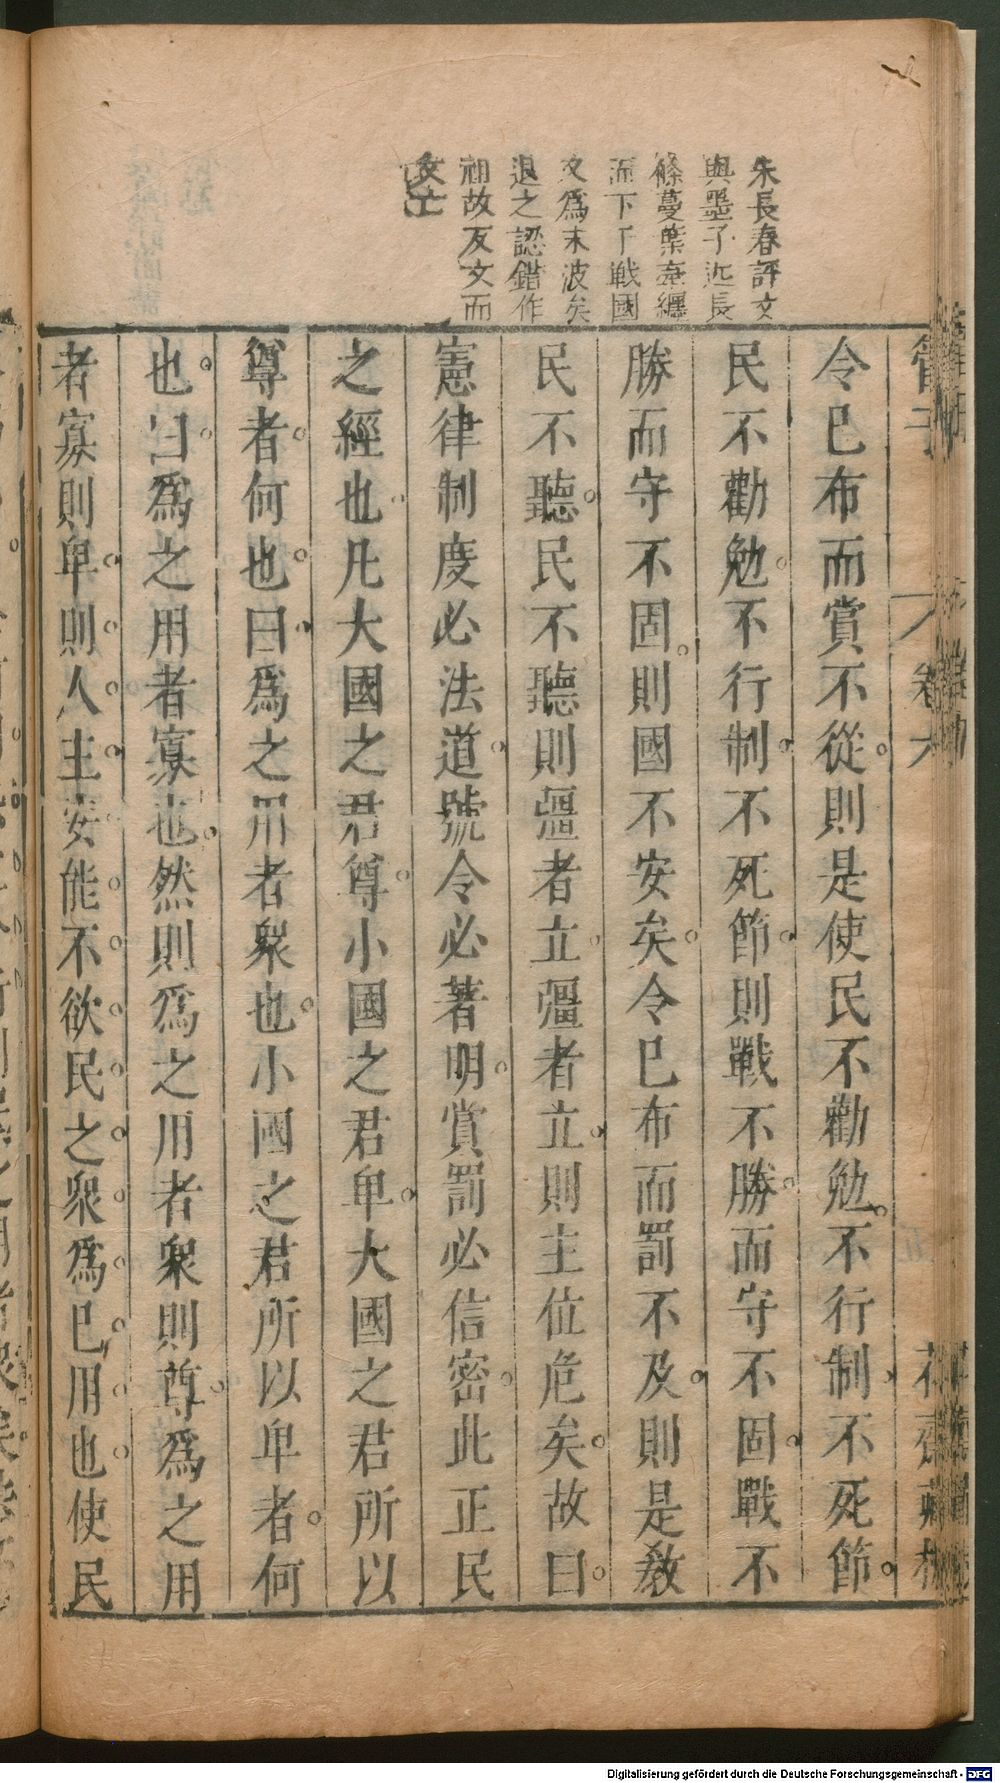 朱長春評文
與墨子近長
條蔓葉牽纏
流下于戰國
文爲末波矣
退之認錯作
祖故友文而
文亡
管子
卷六
花齋藏板
令已布而賞不從則是使民不勸勉不行制不死節
民不勸勉不行制不死節則戰不勝而守不固戰不
勝而守不固則國不安矣令已布而罰不及則是教
民不聽民不聽則彊者立彊者立則主位危矣故曰
憲律制度必法道號令必著明賞罰必信密此正民
之經也凡大國之君尊小國之君卑大國之君所以
尊者何也曰爲之用者衆也小國之君所以卑者何
也曰爲之用者寡也然則爲之用者衆則尊爲之用
者寡則卑則人主安能不欲民之衆爲已用也使民
Digitalisierung gefördert durch die Deutsche Forschungsgemeinschaft - DFG